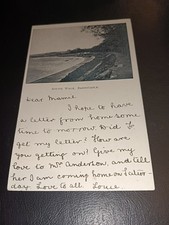 Dear Mamie
I hope to have
a letter from home some
time to morrow Did J.
get my letter? How are
you getting on? Give my
love to Mrs Anderson, and tell
her I am coming home on
day Love to all